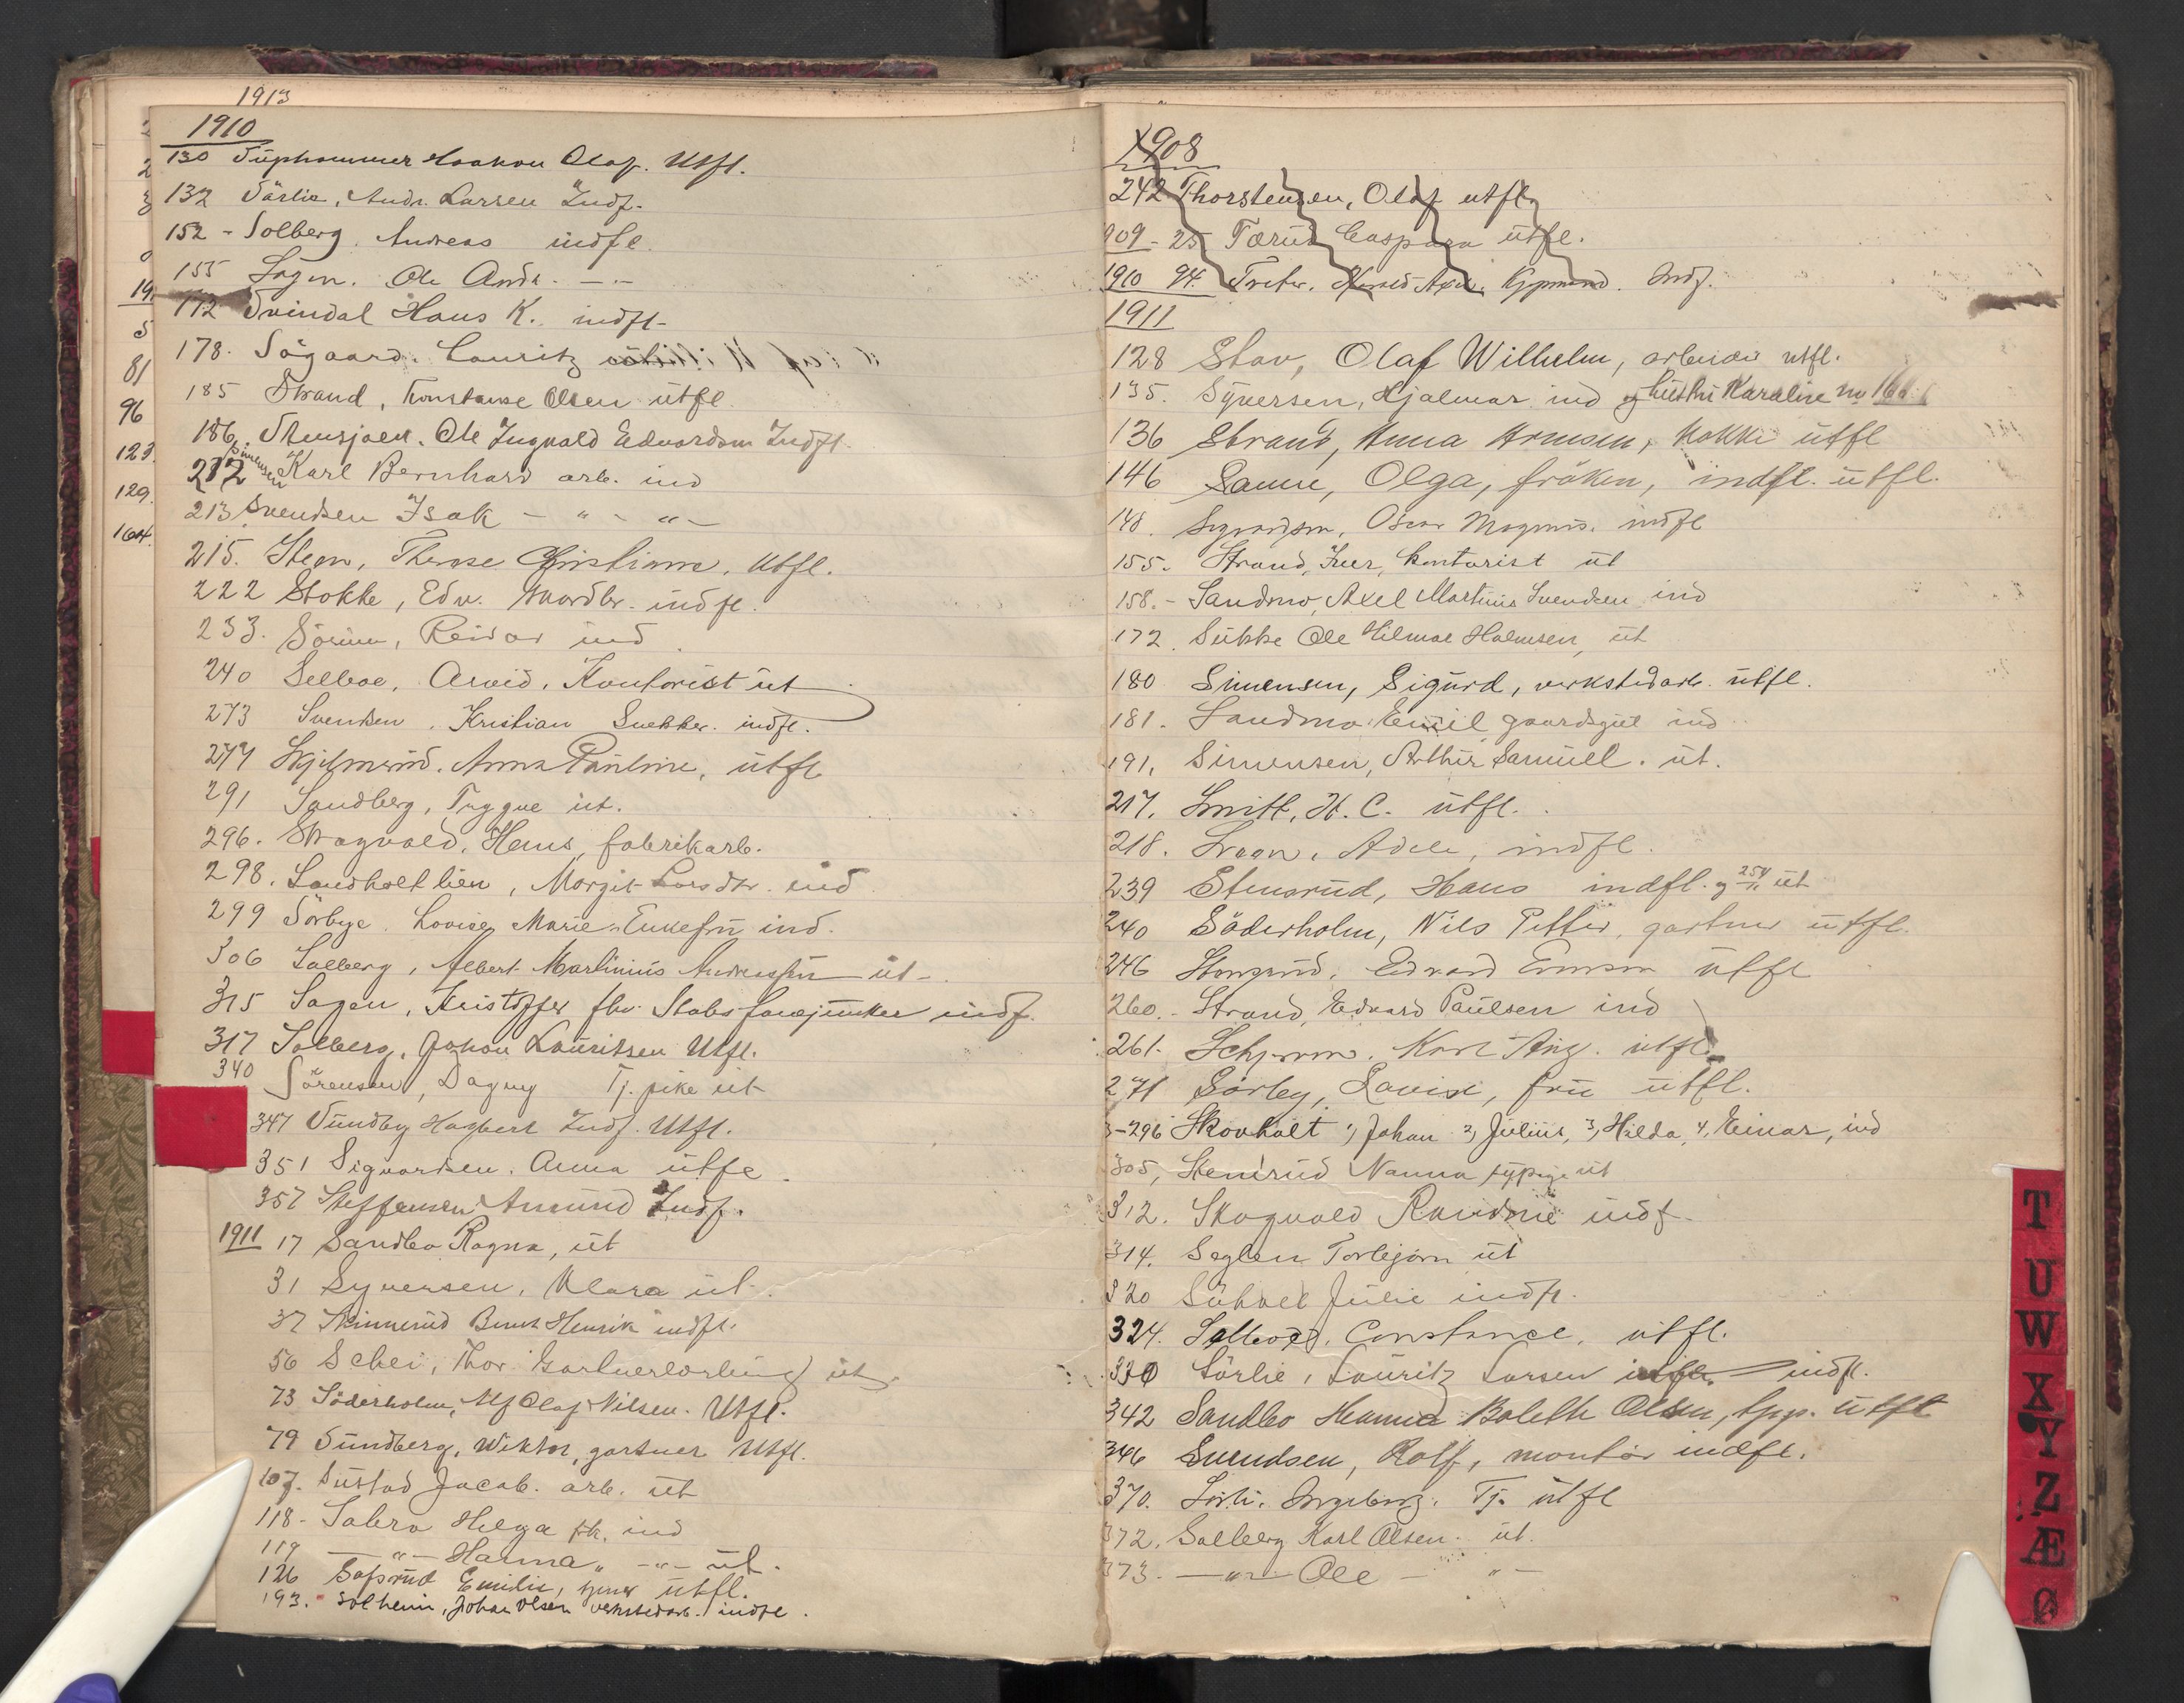 1913
1910
130 Haakon Olaf. Utfl.
132 Sörlie, Andr. Larsen Indf.
152 - Solberg. Andreas indfl.
155 Sagen. Ole Andr. — " —
172 Svindal Hans K. indfl-
178. Sögaard. Lauritz
185 Strand, Konstanse Olsen utfl
186. Stensjoen. Ole Ingvald Edvardsen Indfl.
212 Simensen Karl Bernhard arb. ind
213 Svendsen Isak — " — " —
215. Steen, Therese Christiane, Utfl.
222 Stokke, Edv. Snedkr. indfl.
233. Sörum, Reidar ind
240 Selboe, Arvid, Kontorist ut
273 Svendsen, Kristian Snekker. indfl.
274 Anna Pauline, utfl
291 Sandberg, Trygve ut.
296. Skogvold, Hans, fabrikarb.
298. Sandholtlien, Margit Larsdtr. ind
299 Sörbye. Lovise Marie Enkefru ind.
306 Solberg, Albert Martinius Andreassen ut-
315 Sagen, Kristoffer fhv. Stabsfanejunker indf.
317 Solberg, Johan Lauritsen Utfl.
340 Sörensen, Dagny Tj. pike ut
347 Sundby Hagbert Indf. Utfl.
351 Sigvartsen. Anna utfl.
357 Steffensen Amund Indf.
1911 17 Sandbo Ragna, ut
31 Syversen, Klara ut.
37 Skinnerud Bernt Henrik indfl.
56 Schei, Thor. ut
73 Söderholm, Alf Olaf Nilsen. Utfl.
79 Sundberg, Wiktor, gartner Utfl.
107. Sustad Jacob. arb. ut
118- Sabro Helga frk. ind
119 — " — Hanna " — " — ut.
126 Emilie, utfl.
193. Solheim, Johan Olsen verkstedarb. indfl.
81
96
123.
129.
164.
1908
242 Thorstensen, Olaf utfl.
909 - 25 Tærud Caspara utfl.
1910 94. Indf.
1911
128 Stav, Olaf Wilhelm, arbeider utfl.
135. Syversen, Hjalmar ind og hustru Karoline no 166
136 Strand, Anna Arnesen, kokke utfl
146 Sanne, Olga, fröken, indfl. utfl.
148. Sigvardsen, Oscar Magnus. indfl
155. Strand, Iver, kontorist ut
158. - Sandmo, Axel Martinus Svendsen ind
172. Sukke Ole Hilmar Halmsen, ut
180 Simensen, Sigurd, verkstedarb. utfl.
181. Sandmo Emil gaardsgut ind
191. Simensen, Arthur Samuel. ut.
217. Smith, H. C. utfl.
218. Svaan, Adele, indfl.
239 Stensrud, Hans indfl. og 254/11 ut
240 Söderholm, Nils Petter, gartner utfl.
246 Edvard utfl
260. - Strand, Edvard Paulsen ind
261. Karl Aug. utfl.
271 Sörby, Lovise, fru utfl.
3-296 Skovholt 1, Johan 2, Julius, 3, Hilda, 4, Einar, ind
305, Stensrud Nanna ut
312. Skogvold Randine indf-
314. Seglen Torbjörn ut
320 Julie indfl.
324. Selboe, Constance, utfl.
330 Sörlie, Lauritz Larsen utfl. — indfl.
342 Sandbo Hanna Boleth Olsen, utfl
346 Svendsen, Rolf, montör indfl.
370. Sörli. Ingeborg. Tj. utfl
372. Solberg Karl Olsen. ut.
373. — " — Ole — " —
T
U
W
X
Y
Z
Æ
Ø